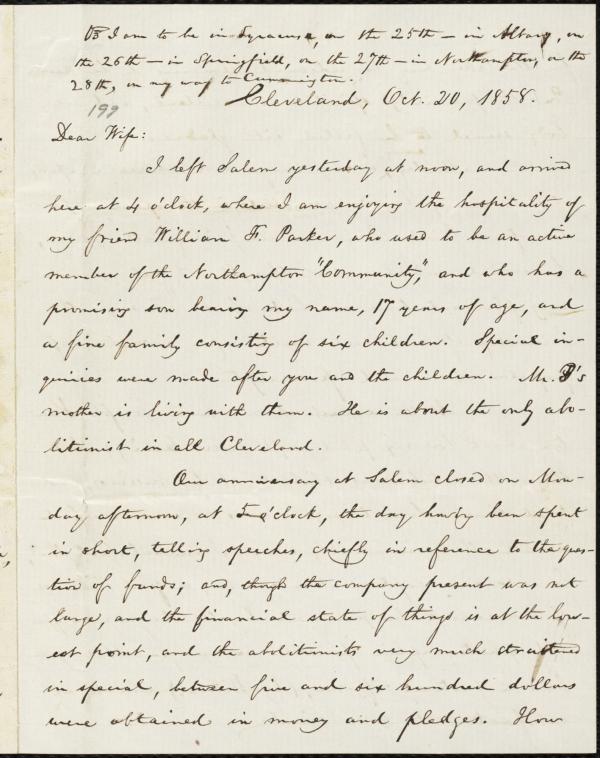 I am to be in Syracuse, on the 25th — in Albany, on
the 26th — in Springfield, on the 27th — in Northampton, on the
28th, on my way to Cummington.
Cleveland, Oct. 20, 1858.
199
Dear Wife:
I left Salem yesterday at noon, and arrived
here at 4 o'clock, where I am enjoying the hospitality of
my friend William F. Parker, who used to be an active
member of the Northampton "Community," and who has a
promising son bearing my name, 17 years of age, and
a fine family consisting of six children. Special in-
quiries were made after you and the children. Mr. P's
mother is living with them. He is about the only abo-
litionist in all Cleveland.
Our anniversary at Salem closed on Mon-
day afternoon, at 5 o'clock, the day having been spent
in short, telling speeches, chiefly in reference to the ques-
tion of funds; and, though the company present was not
large, and the financial state of things is at the low-
est point, and the abolitionists very much straitened
in special, between five and six hundred dollars
were obtained in money and pledges. How